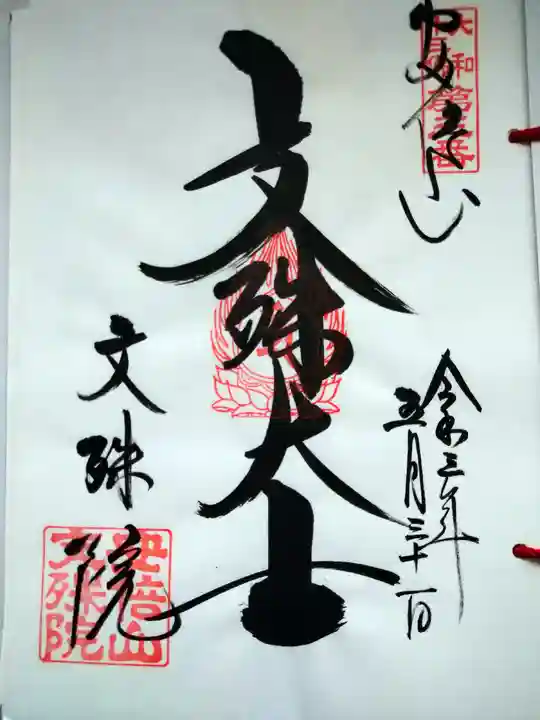 安倍山
大和
第三番
令和三年
五月三十一日
文殊大士
文殊院
安倍山
文殊院